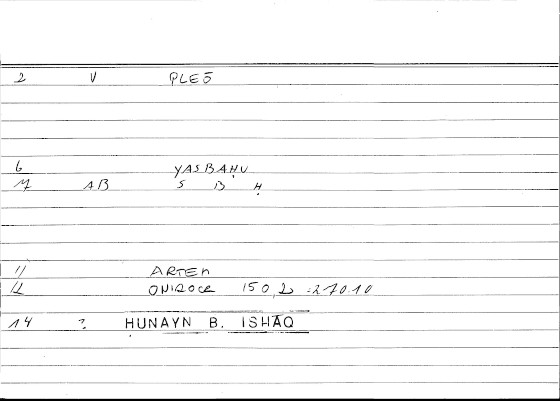 2 V PLEŌ
6 YASBAḤU
7 AB S B Ḥ
11 ARTEM
12 ONIROCR 150,2 = 270.10
14 ? ḤUNAYN B. ISḤĀQ